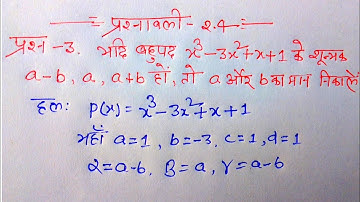 प्रश्नावली - 2.4
प्रश्न -3. यदि बहुपद x³-3x²+x+1 के शून्यक
a-b, a, a+b हों, तो a और b का मान निकालें
हल: P(x) = x³-3x²+x+1
यहाँ a=1, b=-3, c=1, d=1
α=a-b, β=a, γ=a-b